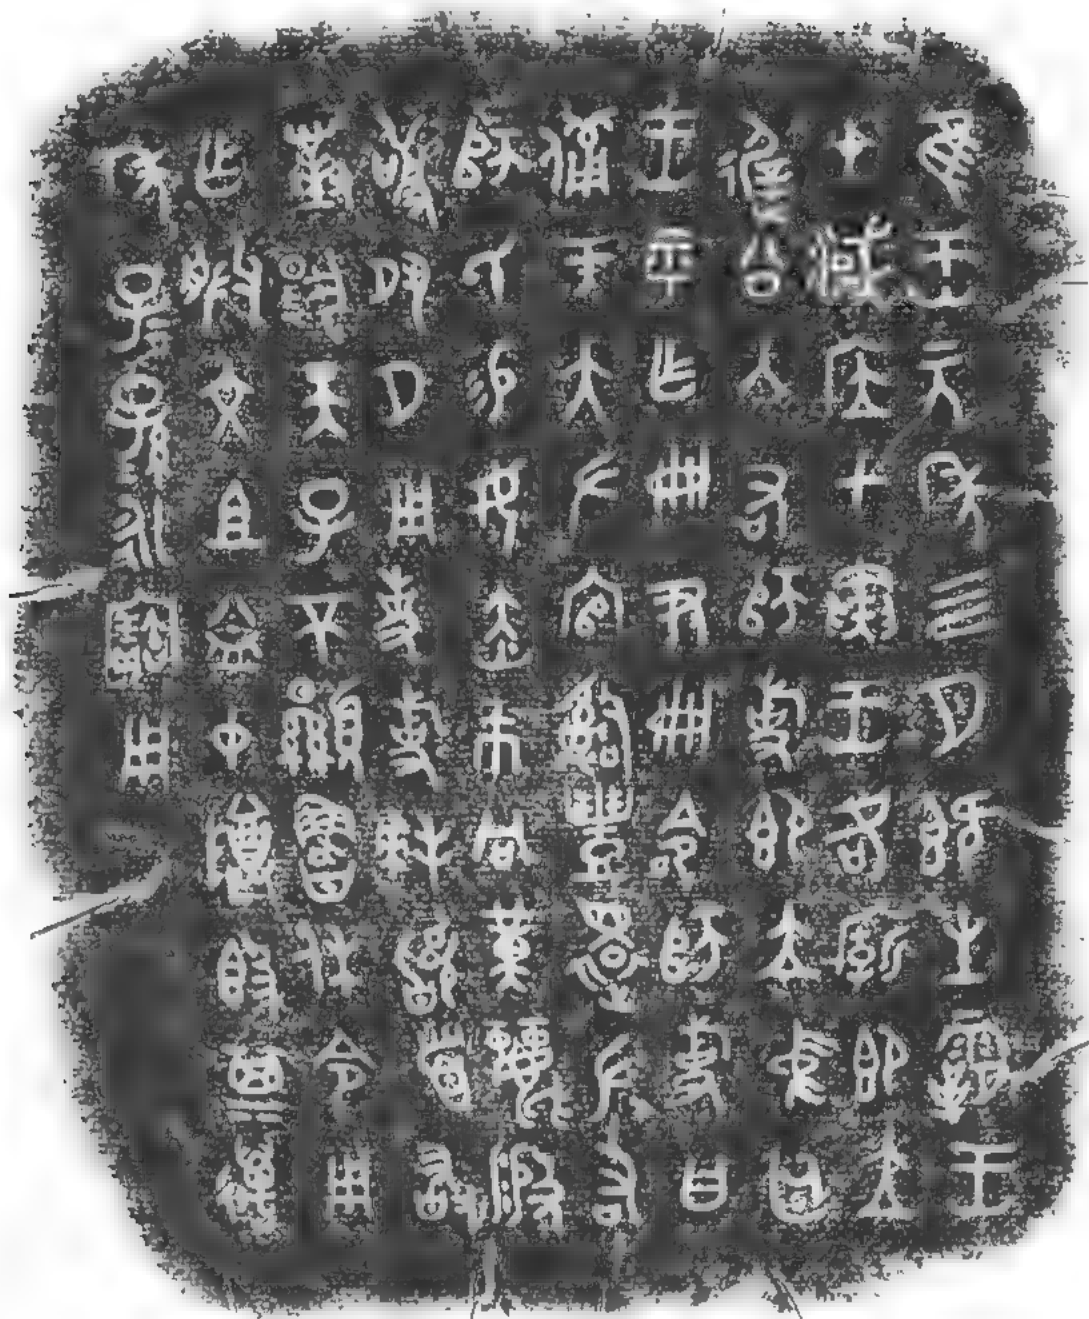 隹王元年四月既生霸王
才淢应甲寅王各廟即立
遟公入右師旋即立中廷
王乎乍冊尹冊命師旋曰
備于大左官𤔲豐還左又
師氏易女赤巿冋黃麗般
敬夙夕用事旋拜𩒨首敢
對揚天子不顯魯休令用
乍朕文且益中尊簋其萬
年子子孫孫永寶用